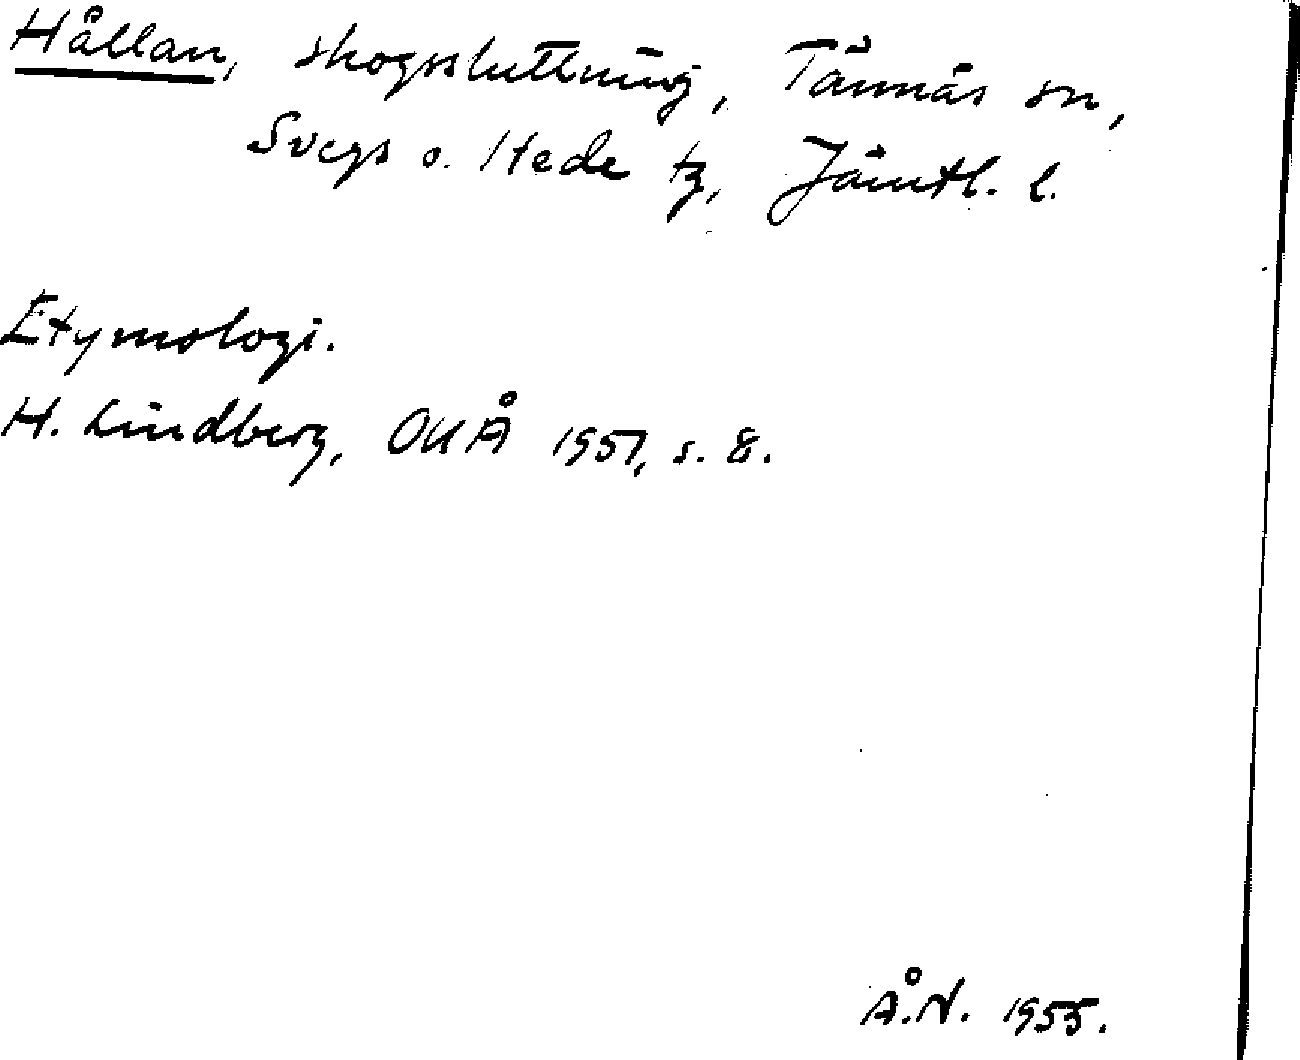 Hållan, skogssluttning, Tännäs sn,
Svegs o. Hede tg, Jämtl. l.
Etymologi.
H. Lindberg, OUÅ 1951, s. 8.
Å.N. 1955.